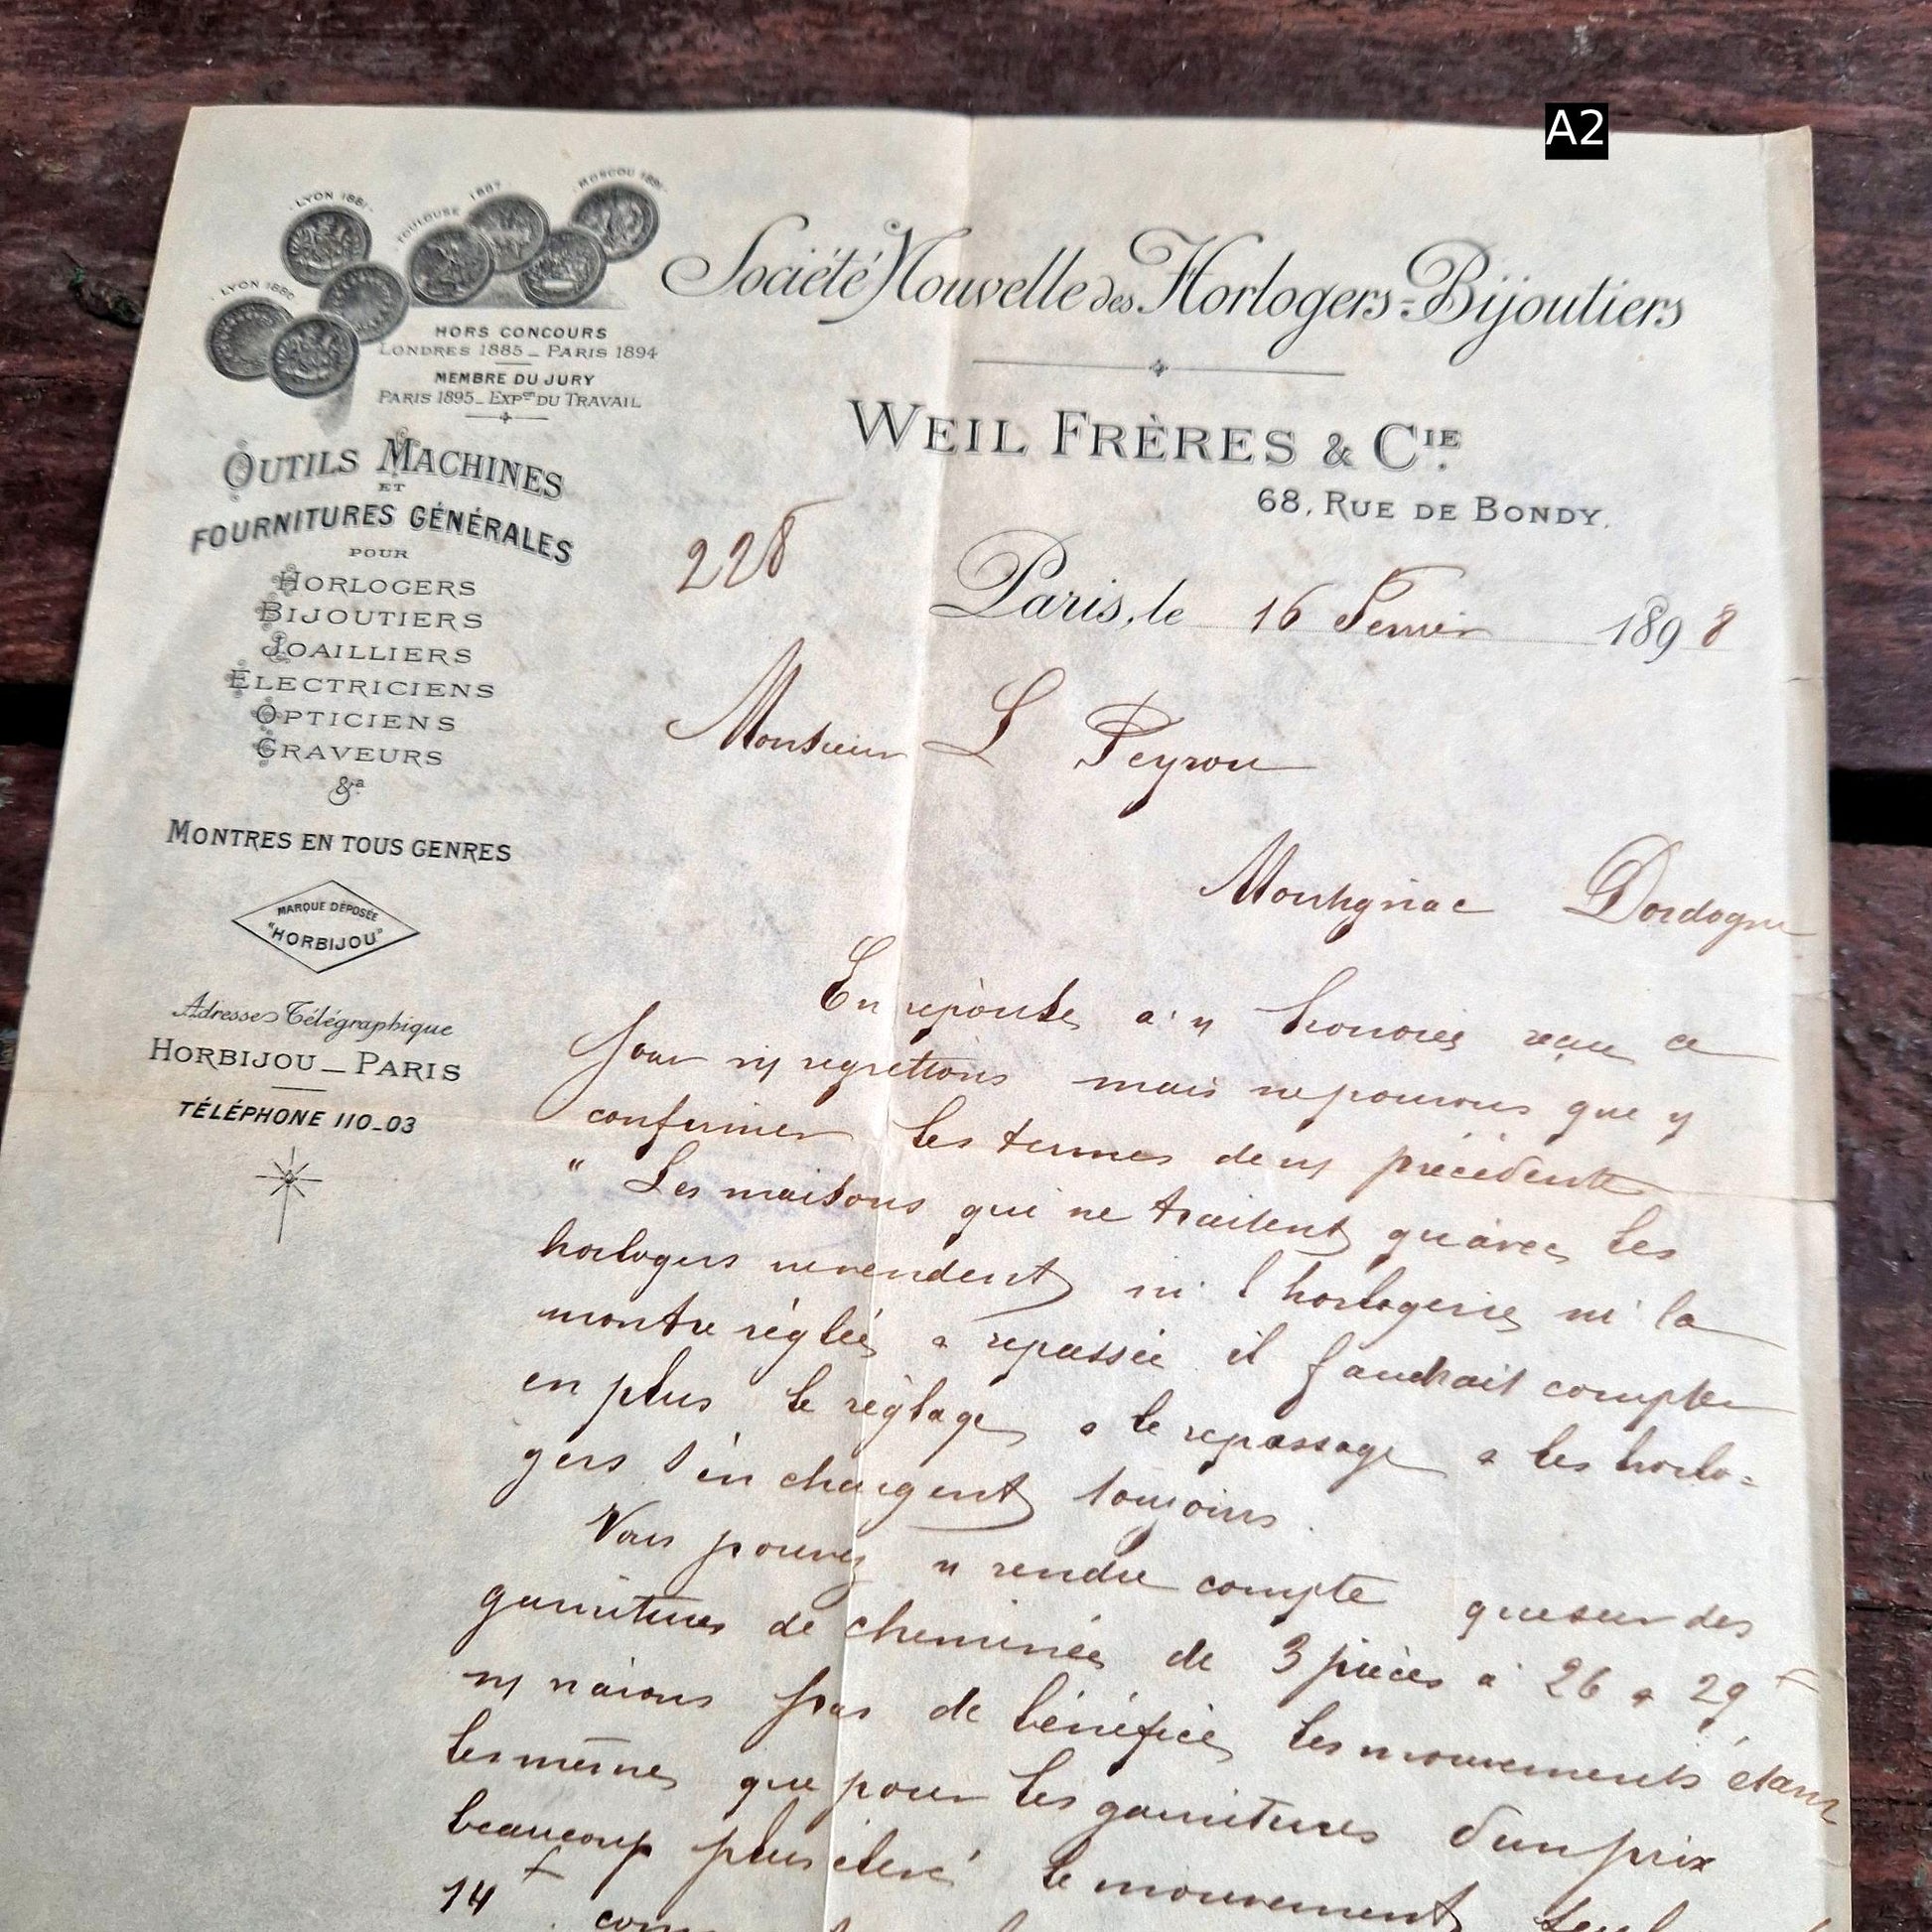 A2
LYON 1881
TOULOUSE 1887
MOSCOU 1891
LYON 1880
HORS CONCOURS
LONDRES 1885 _ PARIS 1894
MEMBRE DU JURY
PARIS 1895 _ EXPon DU TRAVAIL
Société Nouvelle des Horlogers-Bijoutiers
WEIL FRÈRES & CIE
68, RUE DE BONDY.
OUTILS MACHINES
ET
FOURNITURES GÉNÉRALES
POUR
HORLOGERS
BIJOUTIERS
JOAILLIERS
ÉLECTRICIENS
OPTICIENS
GRAVEURS
&a
MONTRES EN TOUS GENRES
MARQUE DÉPOSÉE
"HORBIJOU"
Adresse Télégraphique
HORBIJOU _ PARIS
TÉLÉPHONE 110_03
228
Paris, le 16 Fevrier 1898
Monsieur L Peyrou
Montignac Dordogne
En réponse à v honorée reçue ce
jour ns regrettons mais ne pouvons que v
confirmer les termes de ns précédente
" Les maisons qui ne traitent qu'avec les
horlogers ne vendent ni l'horlogerie ni la
montre réglée & repassée il faudrait compter
en plus le réglage & le repassage & les horlo=
gers s'en chargent toujours.
Vous pouvez v rendre compte que sur des
garnitures de cheminée de 3 pièces à 26 & 29 f
ns n'avons pas de bénéfice, les mouvements étant
les mêmes que pour les garnitures d'un prix
beaucoup plus élevé le mouvement seul
14 f